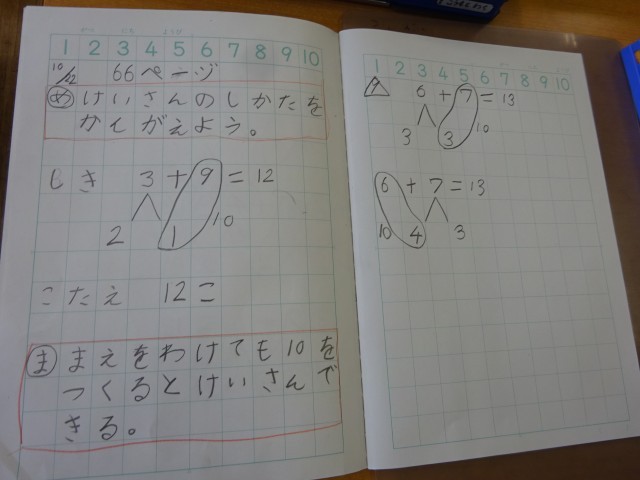 1 2 3 4 5 6 7 8 9 10
10/12 66ページ
め けいさんのしかたを
かんがえよう。
しき 3+9=12
2 1 10
こたえ 12こ
ま まえをわけても10を
つくるとけいさんで
きる。
1 2 3 4 5 6 7 8 9 10
6+7=13
3 3 10
6+7=13
10 4 3